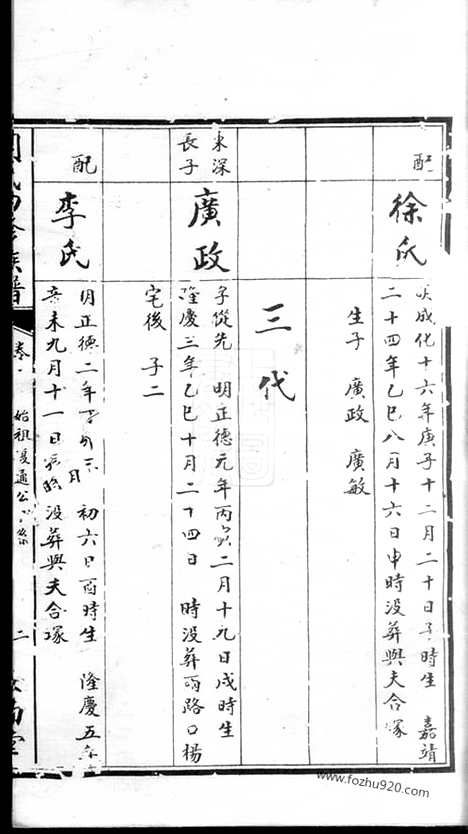 配
徐氏
明成化十六年庚子十二月二十日子時生 嘉靖
二十四年乙巳八月十六日申時没葬與夫合塚
生子 廣政 廣敏
三代
東深
長子
廣政
子從先 明正德元年丙寅二月十九日戌時生
隆慶三年乙巳十月二十四日 時没葬兩路口楊
宅後 子二
配
李氏
明正德二年 月 初六日酉時生 隆慶五年
辛未九月十一日 時没葬與夫合塚
修族譜
卷
始祖 通公 系
二
堂
www.fozhu920.com